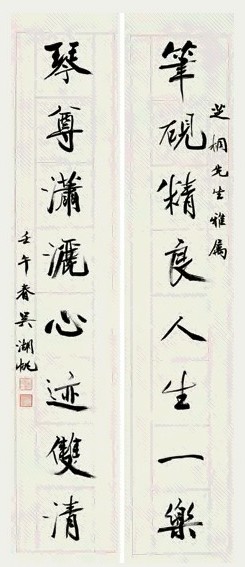 芝桐先生雅属
筆硯精良人生一樂
琴尊瀟灑心迹雙清
壬午春吳湖帆